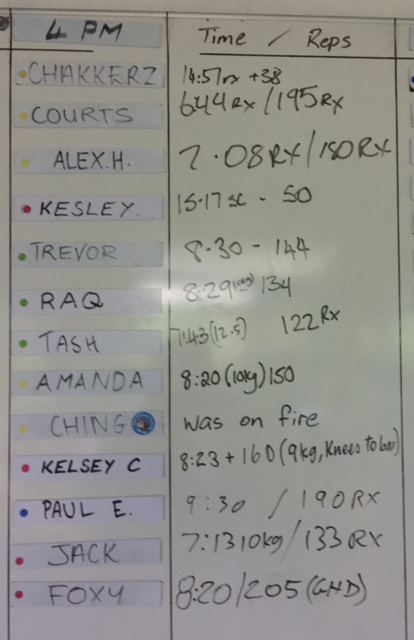 4 PM Time / Reps
CHAKKERZ 14:57rx +38
COURTS 644RX / 195RX
ALEX.H. 7.08RX / 150RX
KESLEY. 15.17 sc - 50
TREVOR 8.30 - 144
RAQ 8:29 134
TASH 7:43 (12.5) 122 RX
AMANDA 8:20 (10kg) 150
CHING was on fire
KELSEY C 8:23 + 160 (9kg, Knees to bar)
PAUL E. 9:30 / 190 RX
JACK 7:13 10kg / 133 RX
FOXY 8:20/205 (GHD)